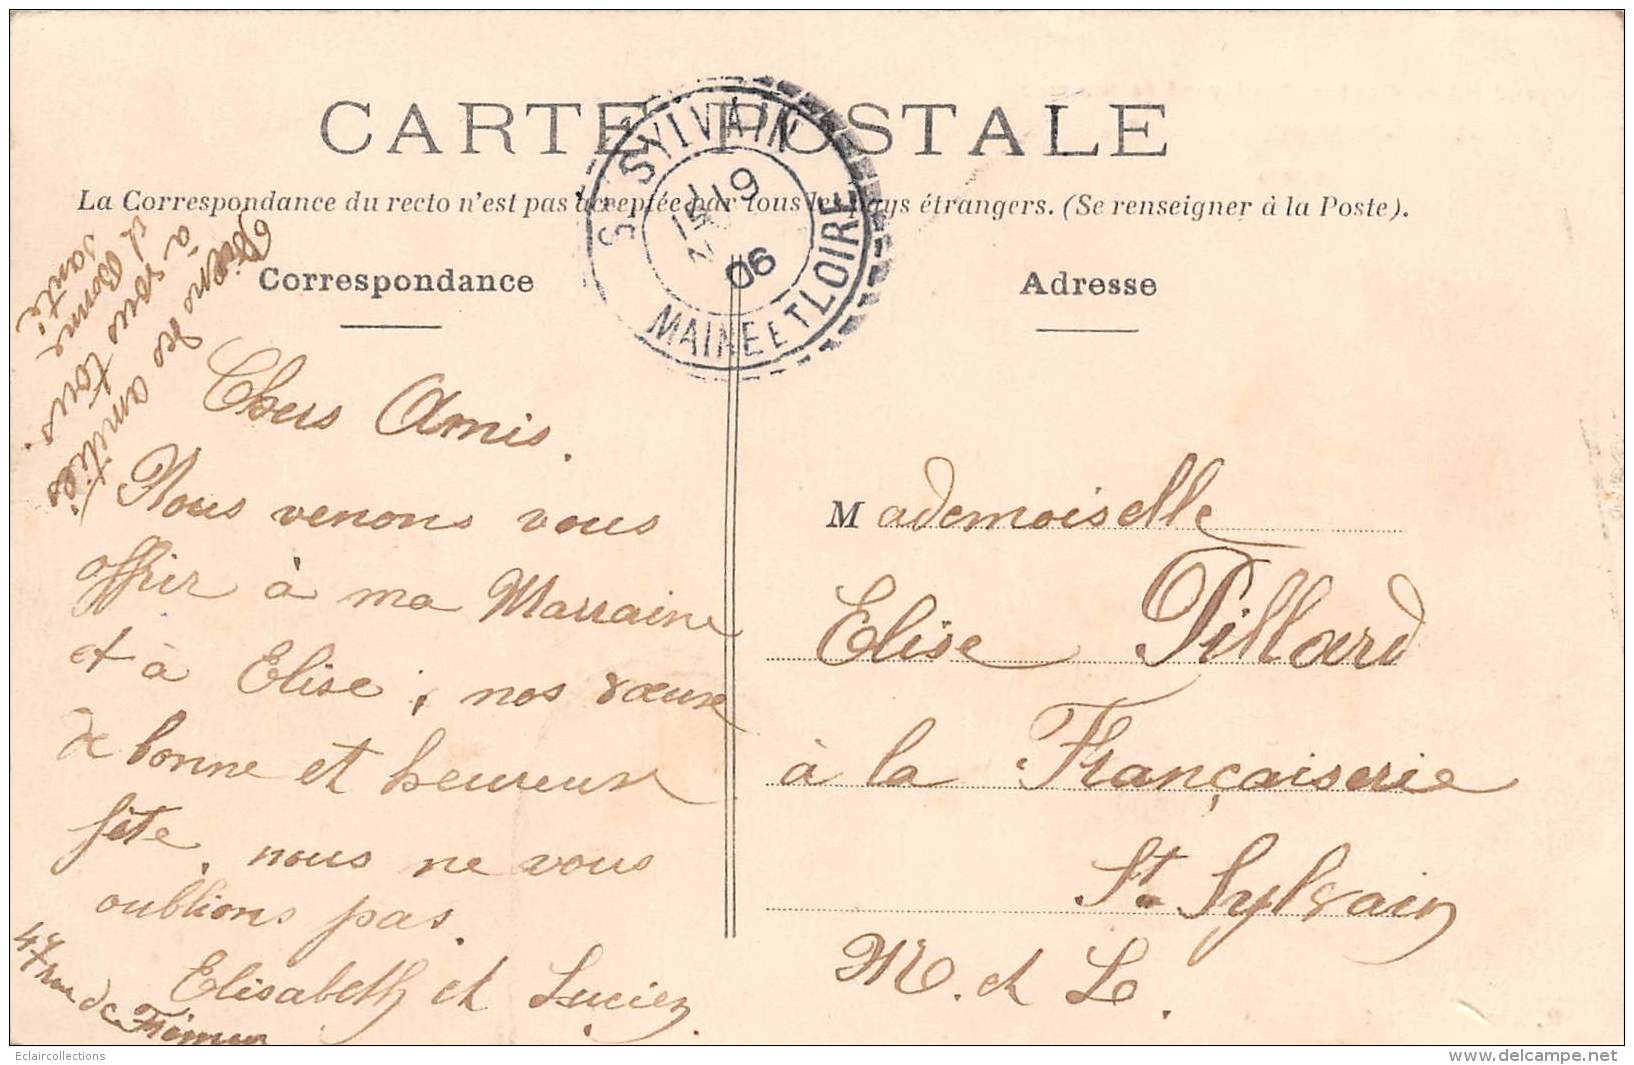 CARTE POSTALE
La Correspondance du recto n'est pas acceptée par tous les pays étrangers. (Se renseigner à la Poste).
S. SYLVAIN
19
06
MAINE ET LOIRE
Correspondance
Adresse
des amitiés
à vous tous.
et Bonne
santé
Chers Amis.
Nous venons vous
offrir à ma Marraine
et à Elise, nos vœux
de bonne et heureuse
fête, nous ne vous
oublions pas.
Elisabeth et Lucien.
47 rue de
Mademoiselle
Elise Pillard
à la Françaiserie
St Sylvain
M. et L.
Eclaircollections
www.delcampe.net